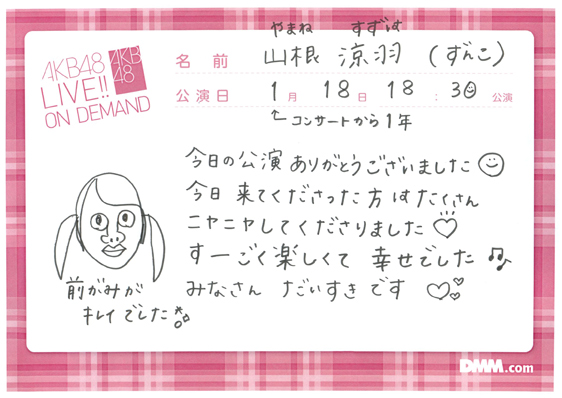 やまね すずは
名前 山根 涼羽 (ずんこ)
AKB48
AKB48
LIVE!!
ON DEMAND
公演日 1月 18日 18:30 公演
↑コンサートから1年
今日の公演 ありがとうございました
今日 来てくださった方はたくさん
ニヤニヤしてくださりました♡
すーごく楽しくて 幸せでした♫
みなさん だいすき です ♡♡
前がみが
キレイでした
DMM.com